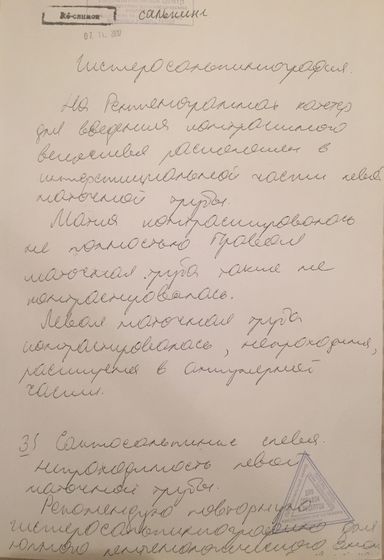 сальпинг
07. 11. 
Гистеросальпингография.
На Рентгенограммах катетер
для введения контрастного
вещества расположен в
интерстициальной части левой
маточной трубы.
Матка контрастировалась
не полностью Правая
маточная труба также не
контрастировалась.
Левая маточная труба
контрастировалась, непроходима,
расширена в ампулярной
части.
Зs Сактосальпинкс слева.
Непроходимость левой
маточной трубы.
Рекомендую повторную
гистеросальпингографию для
полного рентгенологического